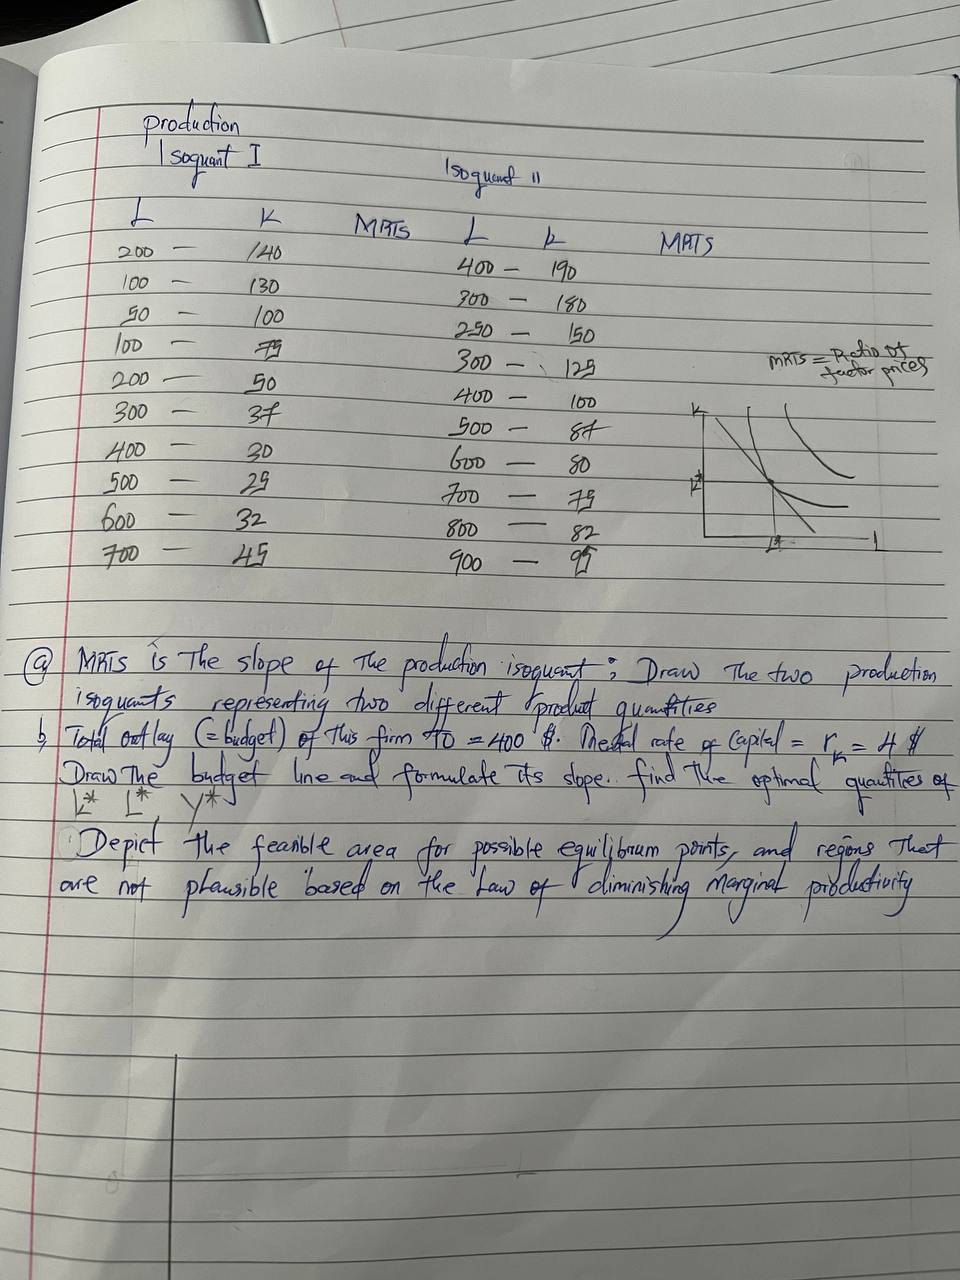 production
Isoquant I
Isoquant II
L K MRTS L K MRTS
200 — 140 400 — 190
100 — 130 300 — 180
50 — 100 250 — 150
100 — 75 300 — 125
200 — 50 400 — 100
300 — 37 500 — 87
400 — 30 600 — 80
500 — 25 700 — 75
600 — 32 800 — 82
700 — 45 900 — 95
MRTS = Ratio of
factor prices
K
K*
L* L
a MRTS is The slope of The production isoquant; Draw The two production
isoquants representing two different product quantities
b, Total outlay (= budget) of This firm TO = 400 $. rate of Capital = rK = 4 $
Draw The budget line and formulate its slope.. find The optimal quantities of
K* L* Y*
Depict the feasible area for possible equilibrium points, and regions That
are not plausible based on the Law of diminishing Marginal productivity